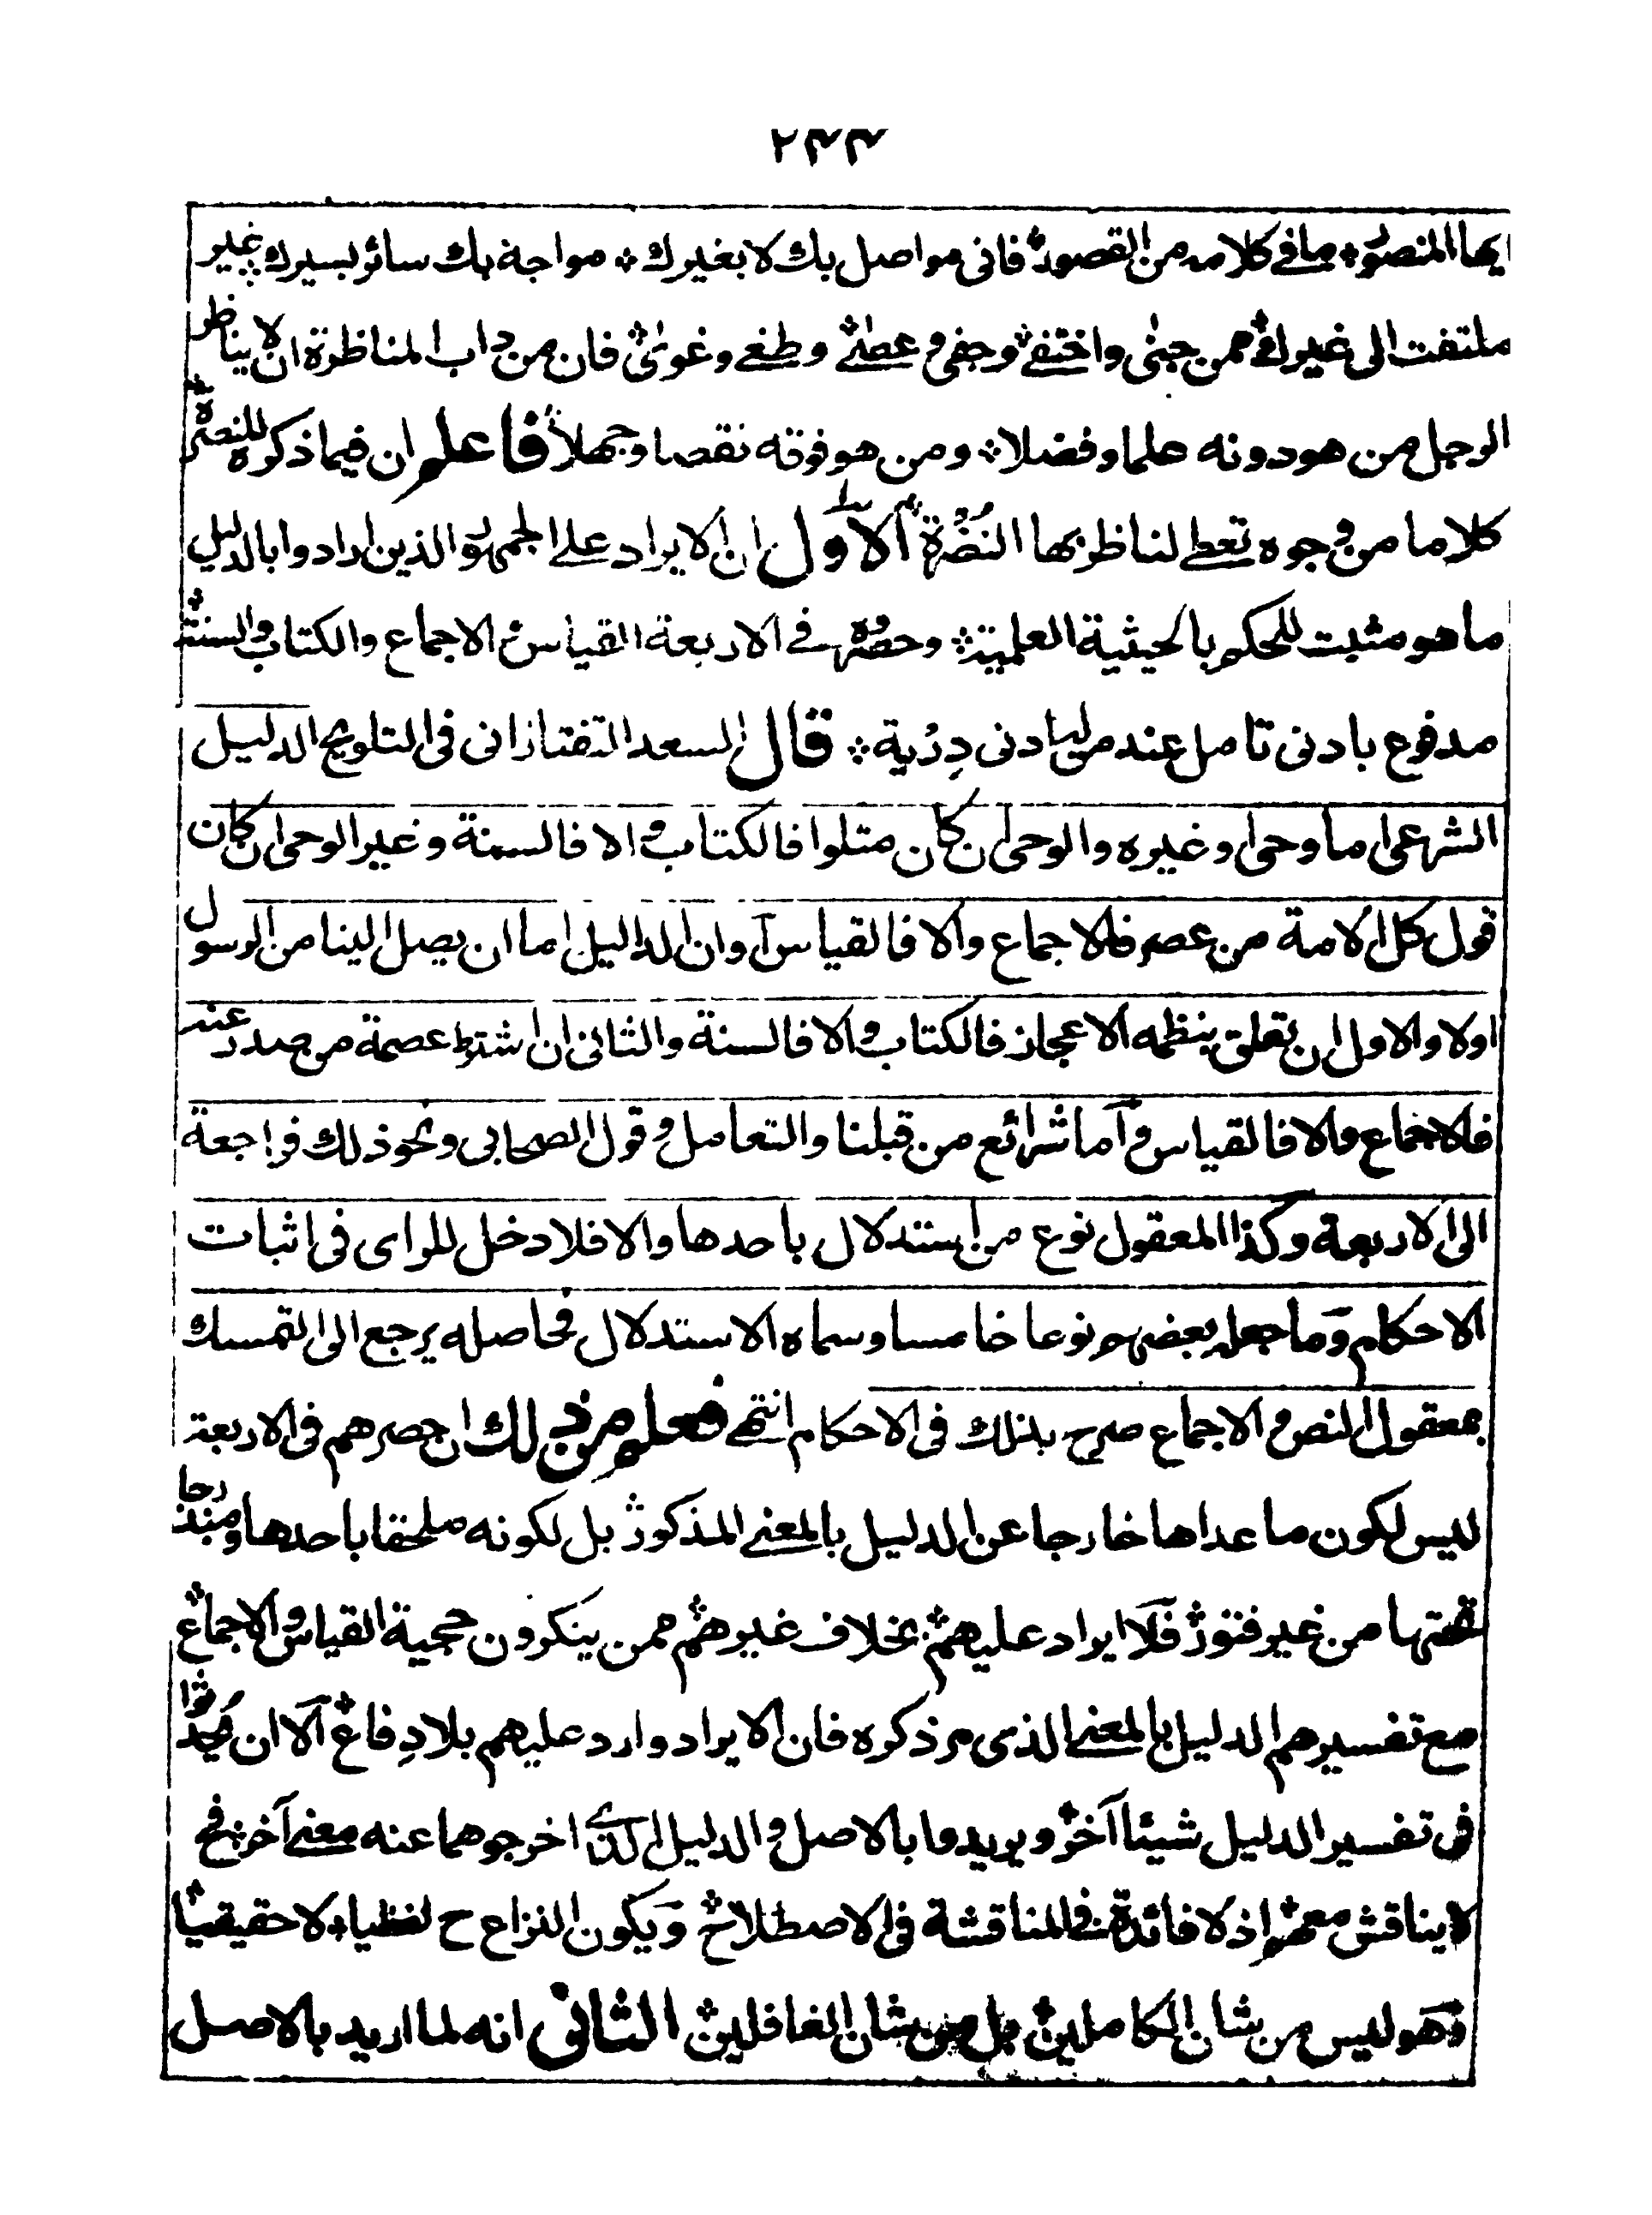 ۲۴۴
ايها المنصور ما فى كلامه من القصور فانى مواصل بك لا بغيرك مواجة بك سائر بسيرك غير
ملتفت الى غيرك ممن جنى واختفى وجفى وعصى وطغى وغوى فان من داب المناظرة ان لا يناظر
الرجل من هو دونه علما وفضلا ومن هو فوقه نقصا وجهلا فاعلم ان فيما ذكره للنصرة
كلاما من وجوه تعطى لناظر بها النضرة الاول ان الايراد على الجمهور الذين ارادوا بالدليل
ما هو مثبت للحكم بالحيثية العلمية وحصره فى الاربعة القياس والاجماع والكتاب والسنة
مدفوع بادنى تامل عند من له ادنى درية قال السعد التفتازانى فى التلويح الدليل
الشرعى اما وحى او غيره والوحى ان كان متلوا فالكتاب والا فالسنة وغير الوحى ان كان
قول كل الامة من عصر فالاجماع والا فالقياس او ان الدليل اما ان يصل الينا من الرسول
اولا والاول ان تعلق بنظمه الاعجاز فالكتاب والا فالسنة والثانى ان اشترط عصمة من صدر عنه
فالاجماع والا فالقياس واما شرائع من قبلنا والتعامل وقول الصحابى ونحو ذلك فراجعة
الى الاربعة وكذا المعقول نوع من استدلال باحدها والا فلا دخل للراى فى اثبات
الاحكام وما جعله بعضهم نوعا خامسا وسماه الاستدلال فحاصله يرجع الى التمسك
بمعقول النص والاجماع صرح بذلك فى الاحكام انتهى فعلم من ذلك ان حصرهم فى الاربعة
ليس لكون ما عداها خارجا عن الدليل بالمعنى المذكور بل لكونه ملحقا باحدها ومندرجا
تحتها من غير فتور فلا ايراد عليهم بخلاف غيرهم ممن ينكرون حجية القياس والاجماع
مع تفسيرهم الدليل بالمعنى الذى مر ذكره فان الايراد وارد عليهم بلا دفاع الا ان يحدثوا
فى تفسير الدليل شيئا آخر ويريدوا بالاصل والدليل الذى اخرجوهما عنه معنى آخر فح
لا يناقش معهم اذ لا فائدة فى المناقشة فى الاصطلاح ويكون النزاع ح لفظيا لا حقيقيا
وهو ليس من شان الكاملين بل من شان الغافلين الثانى انه لما اريد بالاصل